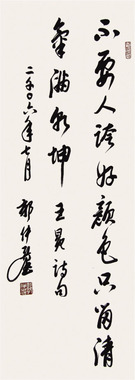 不要人誇好顏色只留清
氣滿乾坤 王冕詩句
二〇〇六年七月 郭仲選